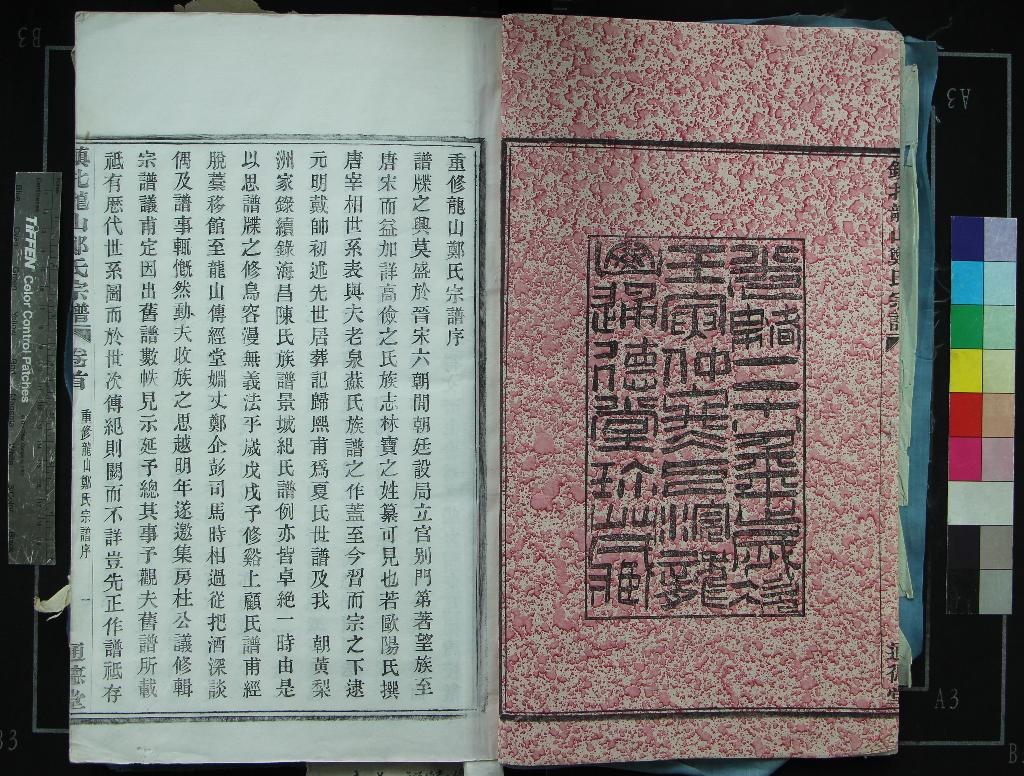 鎮北龍山鄭氏宗譜
通德堂
光緒二十八年歲次
壬寅仲
通德堂珍藏
重修龍山鄭氏宗譜序
譜牒之興莫盛於晉宋六朝間朝廷設局立官別門第著望族至
唐宋而益加詳高儉之氏族志林寶之姓纂可見也若歐陽氏撰
唐宰相世系表與夫老泉蘇氏族譜之作蓋至今習而宗之下逮
元明戴帥初述先世居葬記歸熙甫爲夏氏世譜及我　朝黃梨
洲家錄續錄海昌陳氏族譜景城紀氏譜例亦皆卓絕一時由是
以思譜牒之修烏容漫無義法乎歲戊戌予修谿上顧氏譜甫經
脫藁移館至龍山傳經堂姻丈鄭企彭司馬時相過從把酒深談
偶及譜事輒慨然動大收族之思越明年遂邀集房柱公議修輯
宗譜議甫定因出舊譜數帙見示延予總其事予觀夫舊譜所載
祗有歷代世系圖而於世次傳紀則闕而不詳豈先正作譜祗存
鎮北龍山鄭氏宗譜
卷首
重修龍山鄭氏宗譜序
一
通德堂
TIFFEN Color Control Patches